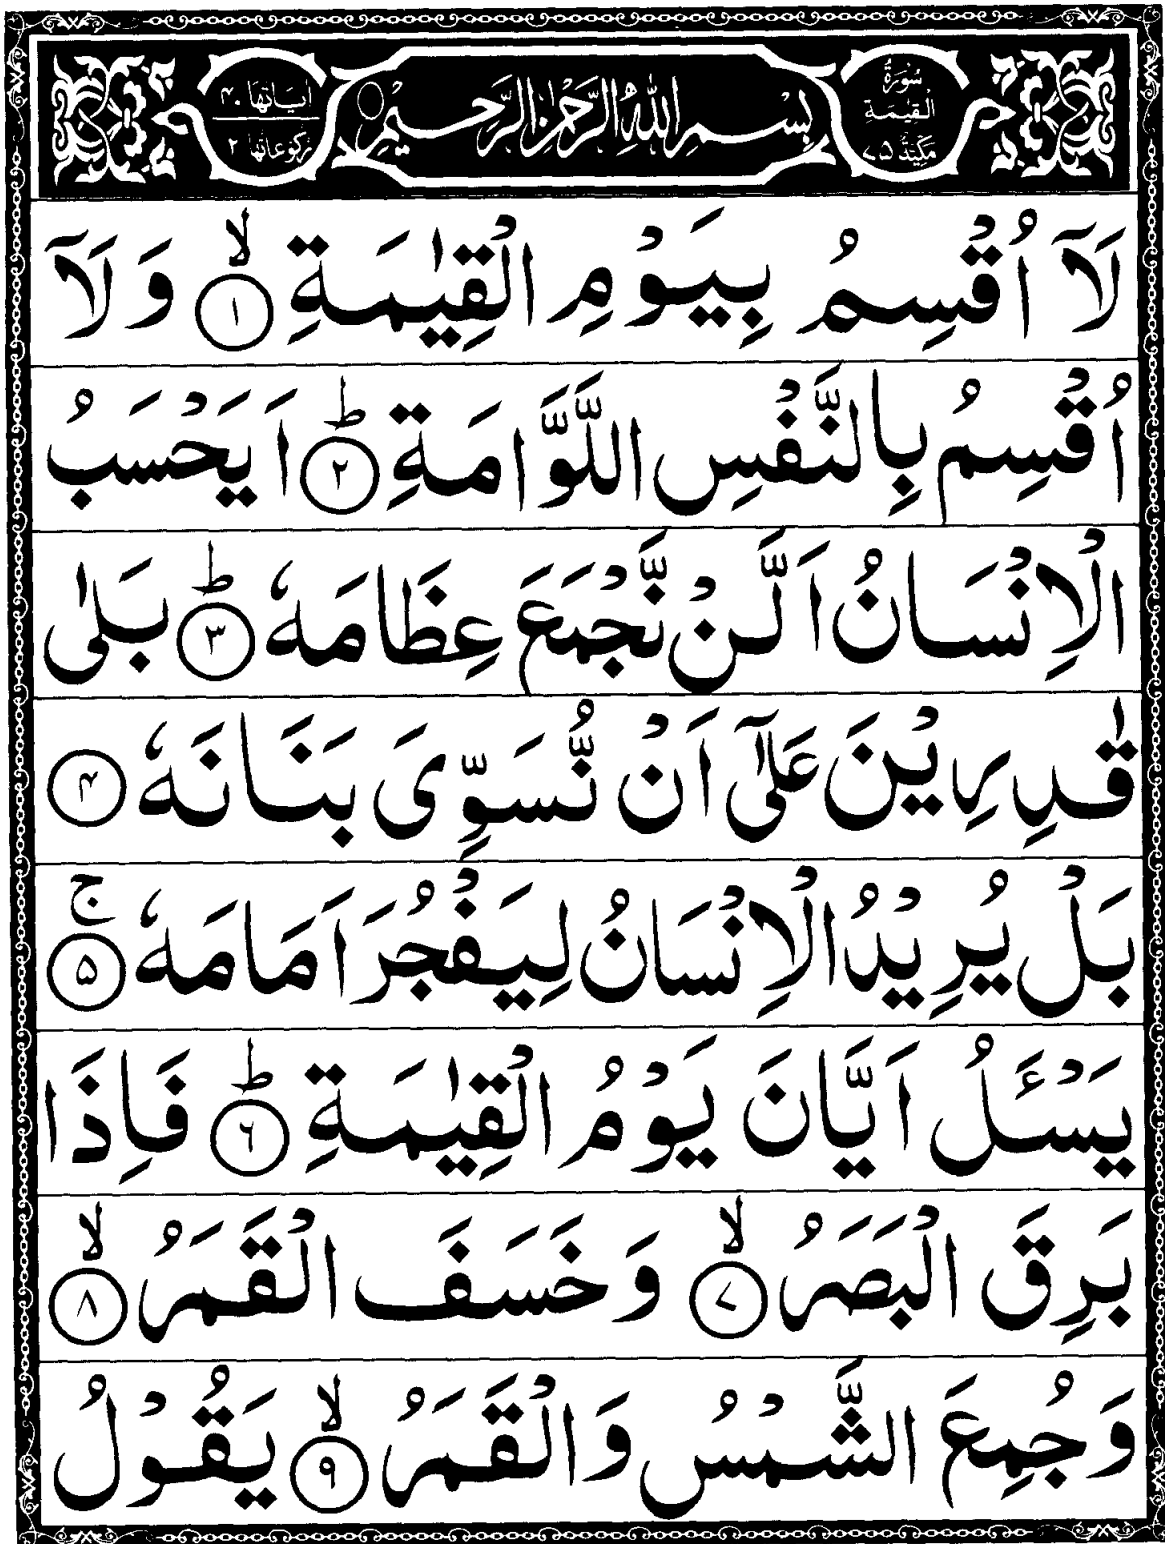 سُوْرَةُ الْقِيٰمَةِ مَكِّيَّةٌ ۷۵
بِسْمِ اللّٰهِ الرَّحْمٰنِ الرَّحِيْمِ
اٰيَاتُهَا ۴۰ رُكُوْعَاتُهَا ۲
لَاۤ اُقْسِمُ بِيَوْمِ الْقِيٰمَةِ ۙ‏﴿۱﴾ وَلَاۤ
اُقْسِمُ بِالنَّفْسِ اللَّوَّامَةِ ؕ‏﴿۲﴾ اَيَحْسَبُ
الْاِنْسَانُ اَلَّنْ نَّجْمَعَ عِظَامَهٗ ؕ‏﴿۳﴾ بَلٰى
قٰدِرِيْنَ عَلٰٓى اَنْ نُّسَوِّىَ بَنَانَهٗ ﴿۴﴾
بَلْ يُرِيْدُ الْاِنْسَانُ لِيَفْجُرَ اَمَامَهٗ ۚ‏﴿۵﴾
يَسْـَٔـلُ اَيَّانَ يَوْمُ الْقِيٰمَةِ ؕ‏﴿۶﴾ فَاِذَا
بَرِقَ الْبَصَرُ ۙ‏﴿۷﴾ وَخَسَفَ الْقَمَرُ ۙ‏﴿۸﴾
وَجُمِعَ الشَّمْسُ وَالْقَمَرُ ۙ‏﴿۹﴾ يَقُوْلُ